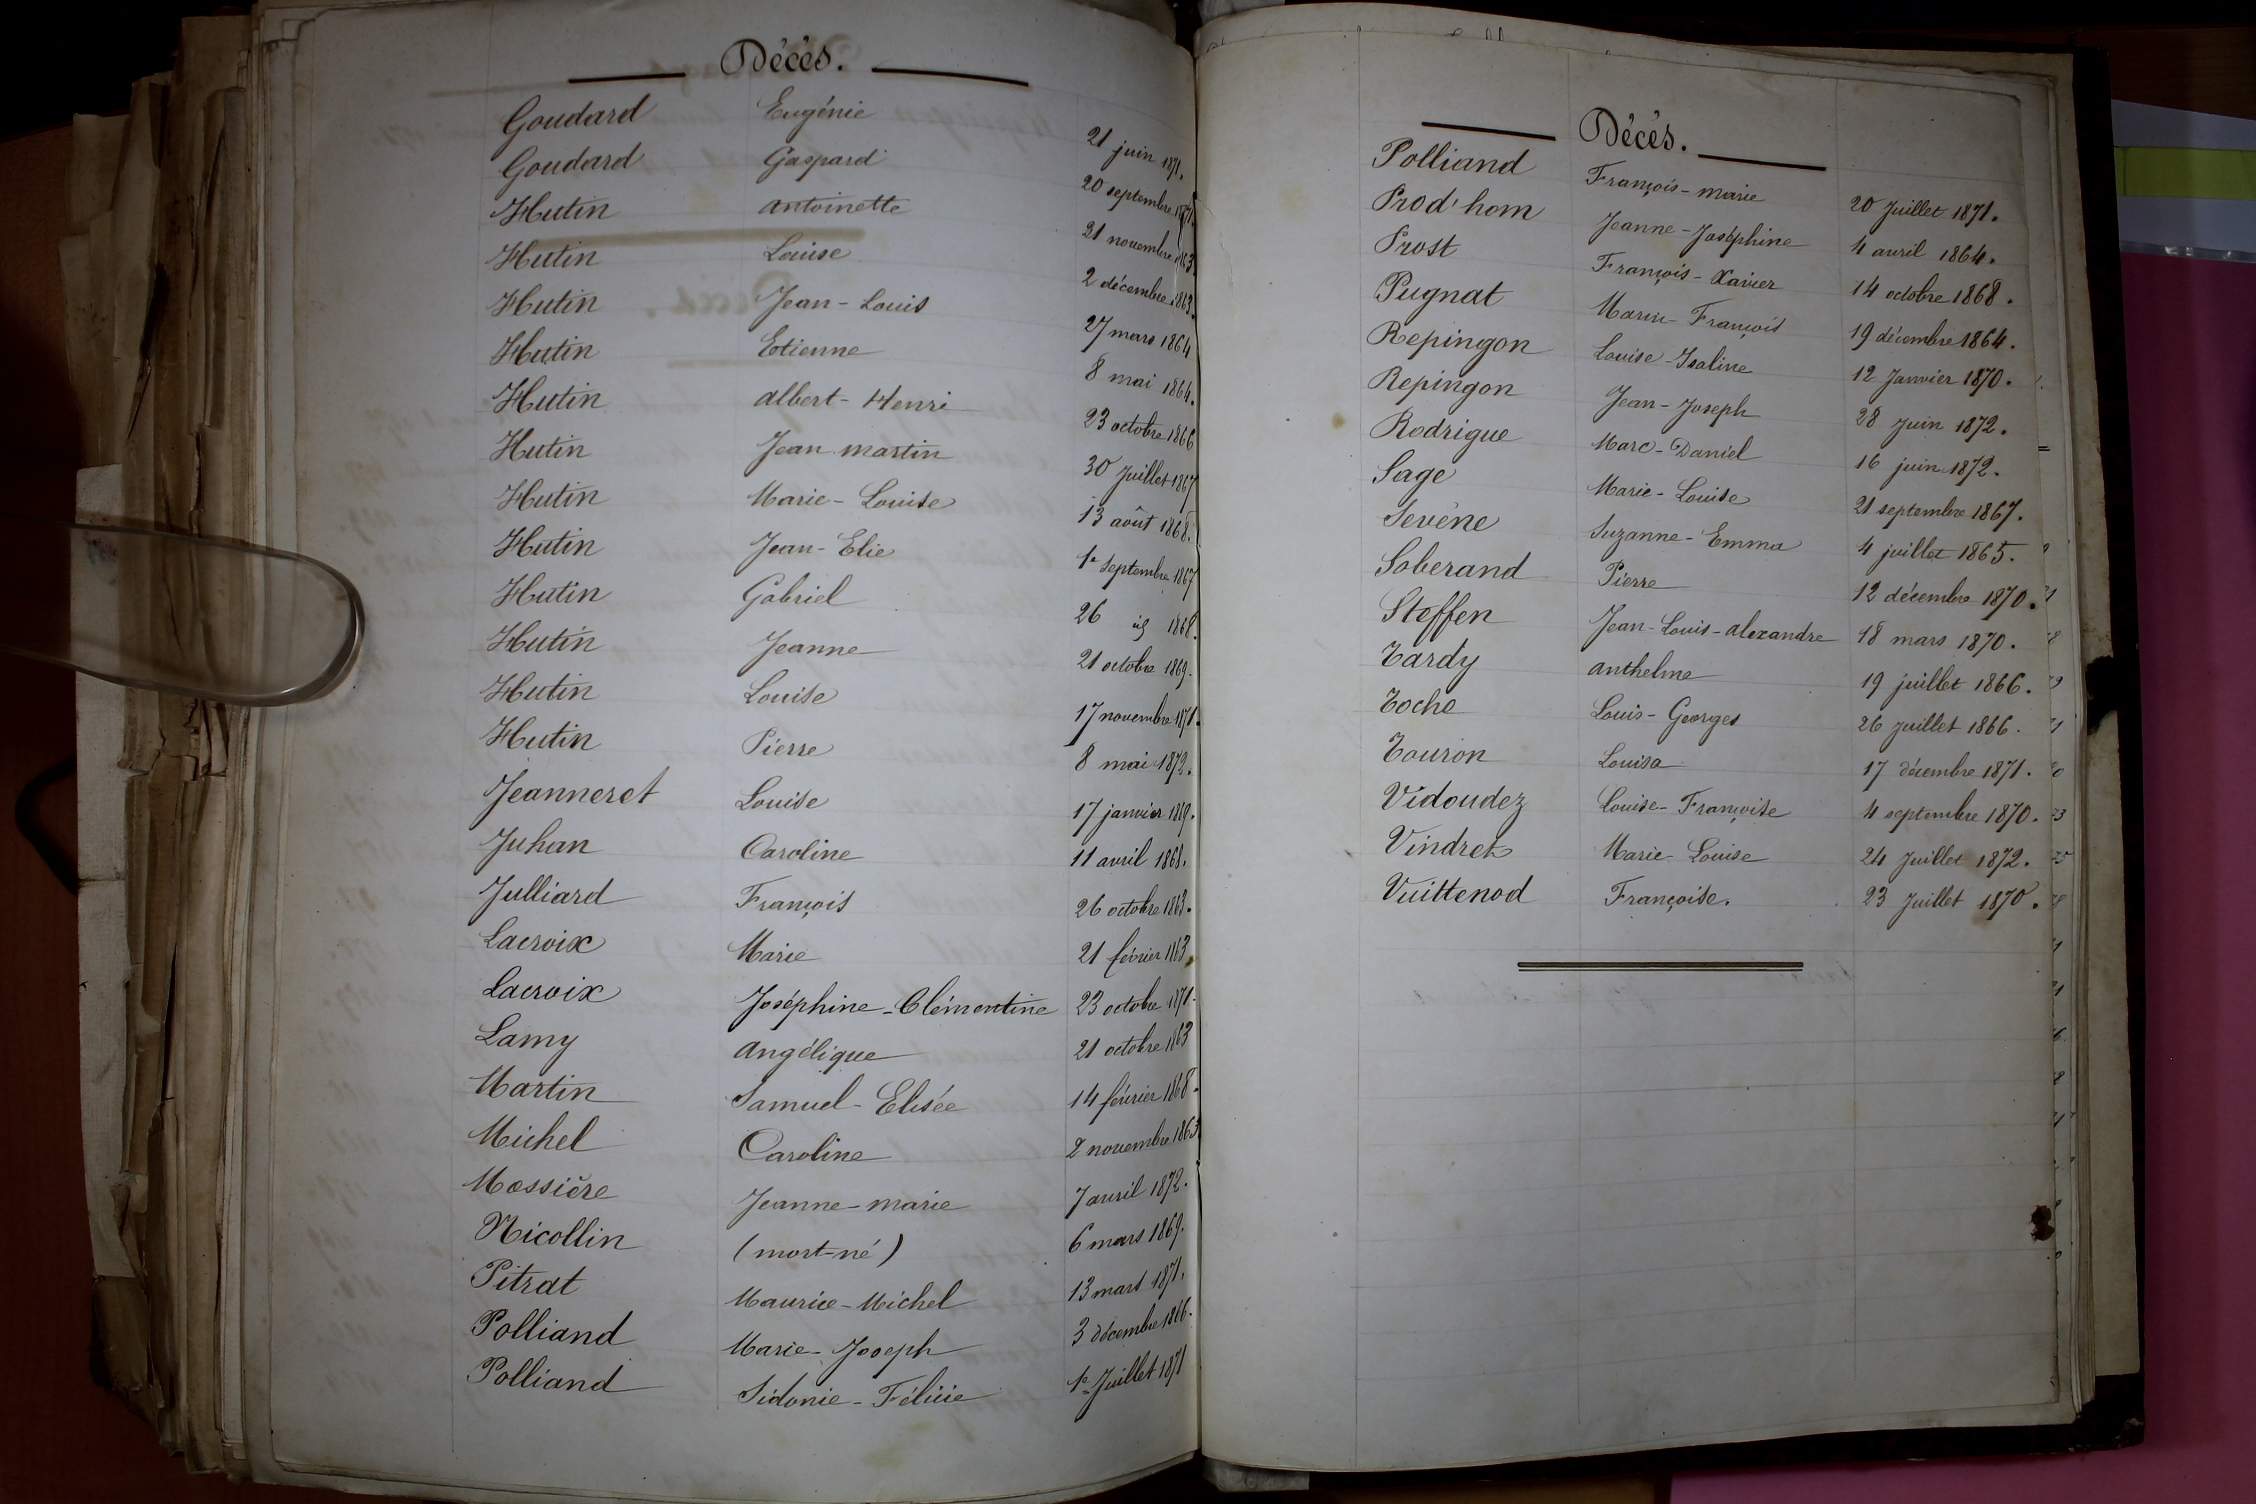 Décès.
Goudard Eugénie 21 juin 1871.
Goudard Gaspard 20 septembre 1871.
Hutin antoinette 21 novembre 1863.
Hutin Louise 2 décembre 1863.
Hutin Jean-Louis 27 mars 1864
Hutin Etienne 8 mai 1864.
Hutin albert-Henri 23 octobre 1866
Hutin Jean martin 30 Juillet 1867
Hutin Marie-Louise 13 août 1868.
Hutin Jean-Elie 1er septembre 1867
Hutin Gabriel 26 id 1868.
Hutin Jeanne 21 octobre 1869.
Hutin Louise 17 novembre 1871.
Hutin Pierre 8 mai 1872.
Jeanneret Louise 17 janvier 1869.
Juhan Caroline 11 avril 1868.
Julliard François 26 octobre 1863.
Lacroix Marie 21 février 1863
Lacroix Joséphine-Clémentine 23 octobre 1871.
Lamy angélique 21 octobre 1863
Martin Samuel-Elisée 14 février 1868.
Michel Caroline 2 novembre 1863
Mossière Jeanne-marie 7 avril 1872.
Nicollin (mort-né) 6 mars 1869.
Pitrat Maurice-Michel 13 mars 1871.
Polliand Marie-Joseph 3 décembre 1866.
Polliand Sidonie-Félicie 1er Juillet 1871
Décès.
Polliand François-marie 20 Juillet 1871.
Prod'hom Jeanne-Joséphine 4 avril 1864.
Prost François-Xavier 14 octobre 1868.
Pugnat Marie-François 19 décembre 1864.
Repingon Louise-Isaline 12 Janvier 1870.
Repingon Jean-Joseph 28 Juin 1872.
Rodrigue Marc-Daniel 16 juin 1872.
Sage Marie-Louise 21 septembre 1867.
Sevène Suzanne-Emma 4 juillet 1865.
Soberand Pierre 12 décembre 1870.
Steffen Jean-Louis-alexandre 18 mars 1870.
Tardy anthelme 19 juillet 1866.
Toche Louis-Georges 26 Juillet 1866.
Touron Louisa 17 décembre 1871.
Vidoudez Louise-Françoise 4 septembre 1870.
Vindret Marie-Louise 24 Juillet 1872.
Vuittenod Françoise. 23 Juillet 1870.